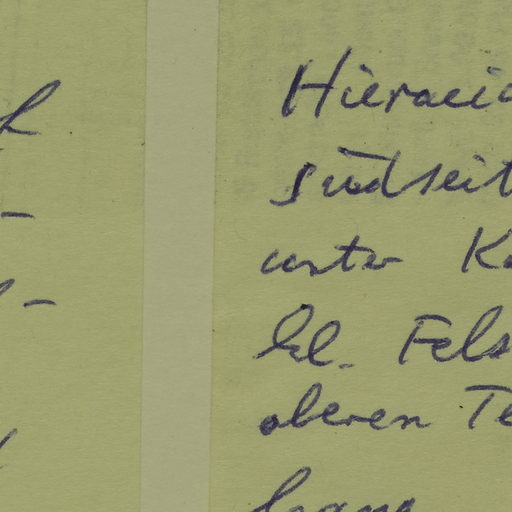 Hieraci
südseit
unter K
kl. Fels
oberen Te
hang